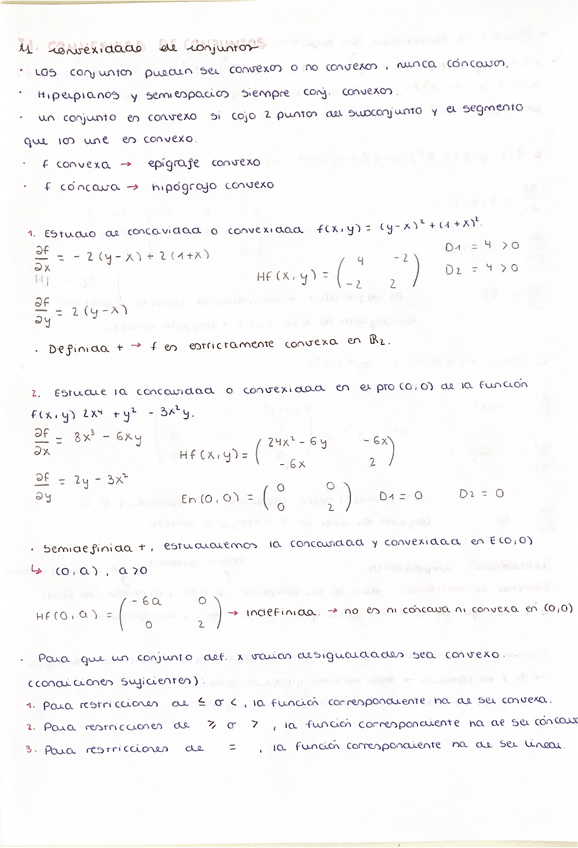 11 convexidade de conjuntos
· Los conjuntos pueden ser convexos o no convexos, nunca cóncavos.
· Hiperplanos y semiespacios siempre conj. convexos.
· un conjunto es convexo si cojo 2 puntos del subconjunto y el segmento
que los une es convexo.
· f convexa → epígrafe convexo
· f cóncava → hipógrafo convexo
1. Estudio de concavidad o convexidad f(x,y) = (y-x)² + (1+x)².
∂f/∂x = -2(y-x) + 2(1+x)
Hf(x,y) = ( 4 -2 ; -2 2 )
D1 = 4 > 0
D2 = 4 > 0
∂f/∂y = 2(y-x)
· Definida + → f es estrictamente convexa en R2.
2. Estudie la concavidad o convexidad en el pto (0,0) de la función
f(x,y) 2x⁴ + y² - 3x²y.
∂f/∂x = 8x³ - 6xy
Hf(x,y) = ( 24x² - 6y -6x ; -6x 2 )
∂f/∂y = 2y - 3x²
En (0,0) = ( 0 0 ; 0 2 ) D1 = 0 D2 = 0
· Semidefinida +, estudiaremos la concavidad y convexidad en E(0,0)
↳ (0,a), a>0
Hf(0,a) = ( -6a 0 ; 0 2 ) → indefinida → no es ni cóncava ni convexa en (0,0)
· Para que un conjunto def. x varias desigualdades sea convexo.
(condiciones suficientes).
1. Para restricciones de ≤ o <, la función correspondiente ha de ser convexa.
2. Para restricciones de ≥ o >, la función correspondiente ha de ser cóncava
3. Para restricciones de =, la función correspondiente ha de ser lineal.